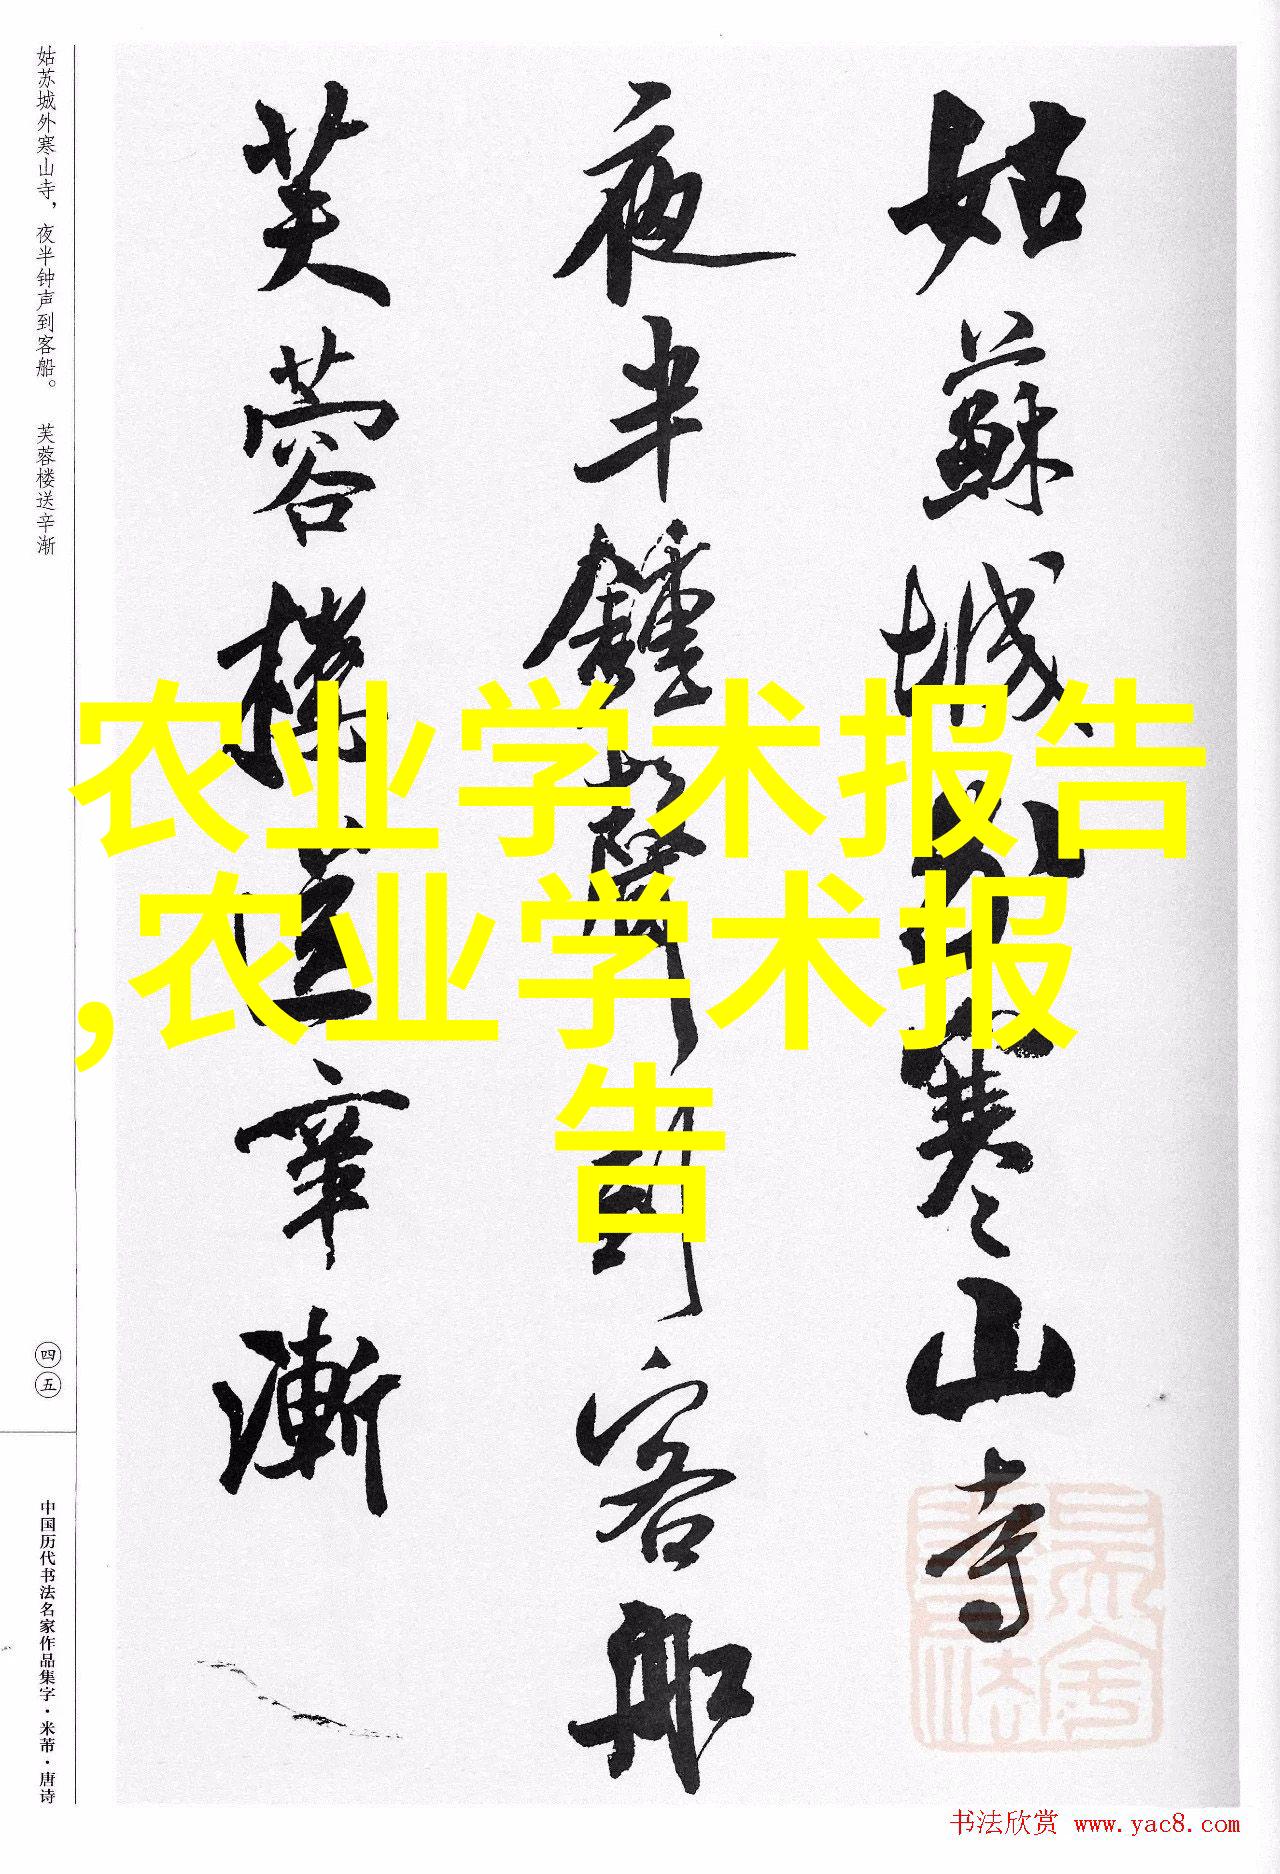 姑蘇城外寒山寺
夜半鐘聲到客船
芙蓉樓送辛漸
农业学术报告
,农业学术报
告
姑苏城外寒山寺，夜半钟声到客船。　芙蓉楼送辛渐
四五
中国历代书法名家作品集字·米芾·唐诗
书法欣赏 www.yac8.com